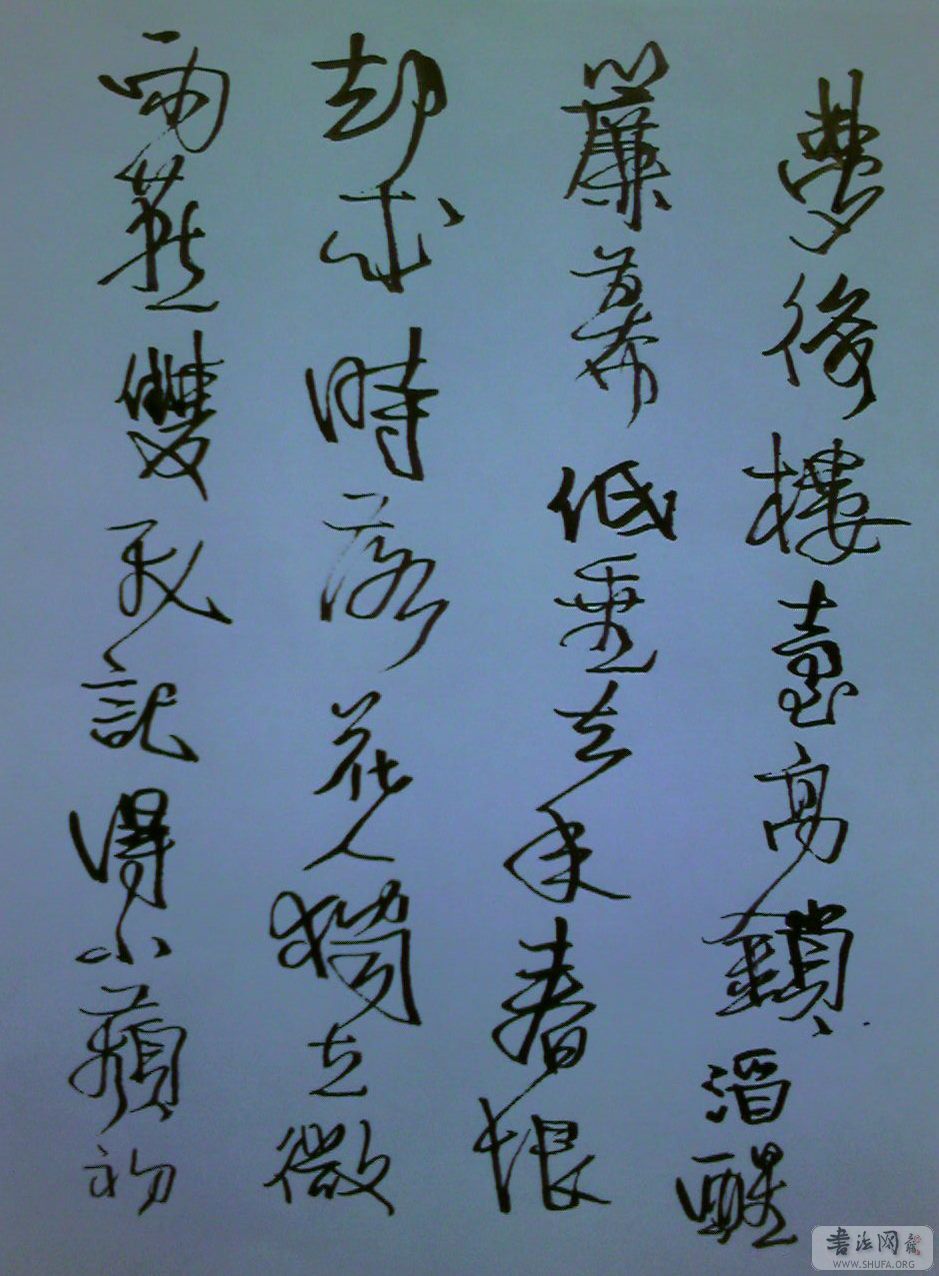 夢後樓臺高鎖酒醒
簾幕低垂去年春恨
却來時落花人獨立微
雨燕雙飛記得小蘋初
書法网
WWW.SHUFA.ORG